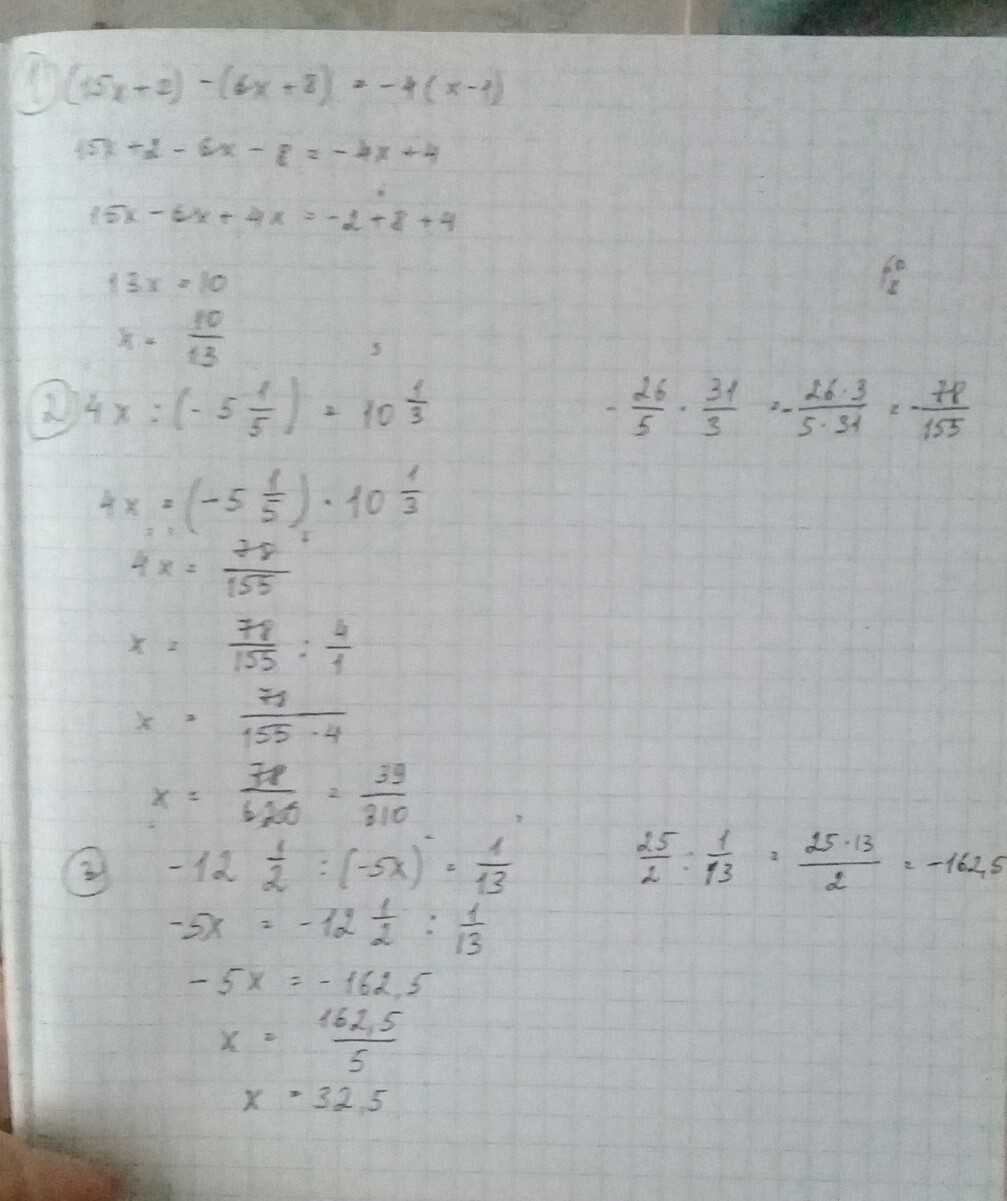 ① (15x+2) - (6x+8) = -4(x-1)
15x+2-6x-8=-4x+4
15x-6x+4x=-2+8+4
13x=10
x = 10/13
② 4x : (-5 1/5) = 10 1/3
- 26/5 · 31/3 = - 26·3/5·31 = - 78/155
4x = (-5 1/5) · 10 1/3
4x = 78/155
x = 78/155 : 4/1
x = 78/155·4
x = 78/620 = 39/310
③ -12 1/2 : (-5x) = 1/13
25/2 : 1/13 = 25·13/2 = -162,5
-5x = -12 1/2 : 1/13
-5x = -162,5
x = 162,5/5
x = 32,5